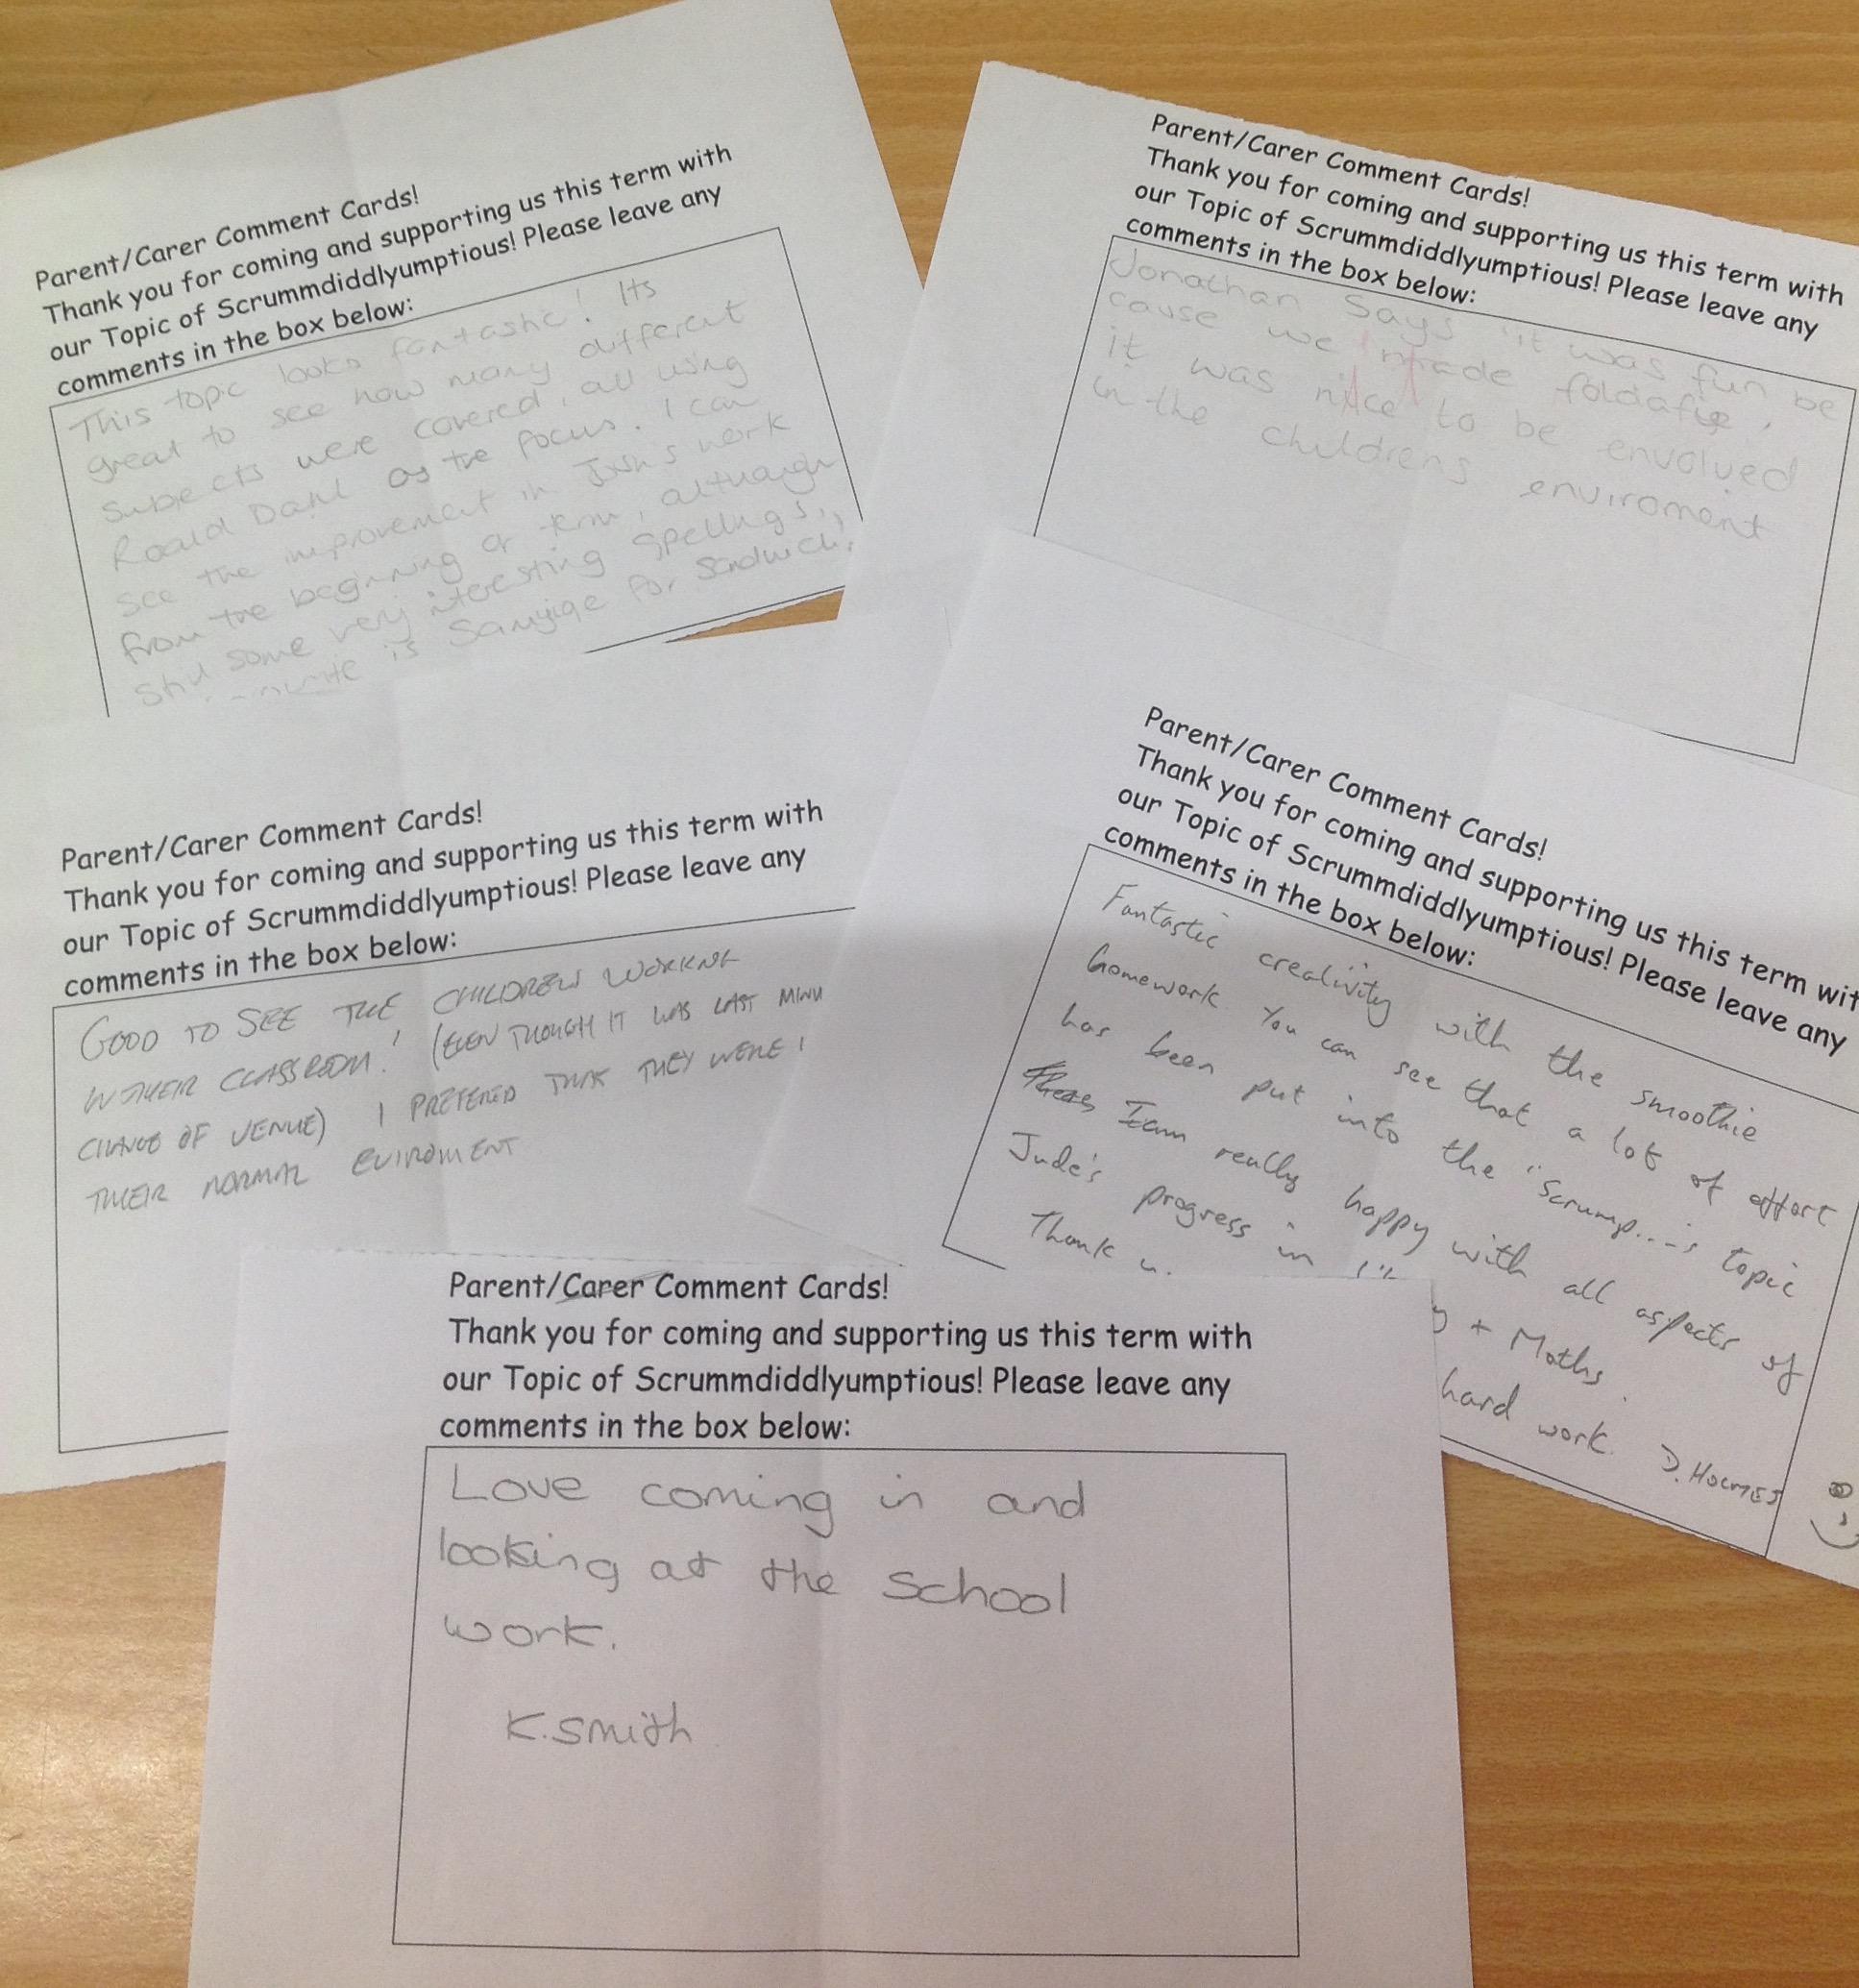 Parent/Carer Comment Cards!
Thank you for coming and supporting us this term with
our Topic of Scrummdiddlyumptious! Please leave any
comments in the box below:
This topic looks fantastic! Its
great to see how many different
subjects were covered, all using
Roald Dahl as the focus. I can
see the improvement in Josh's work
from the beginning of term, although
still some very interesting spellings,
is Sanyige for Sandwich.
Parent/Carer Comment Cards!
Thank you for coming and supporting us this term with
our Topic of Scrummdiddlyumptious! Please leave any
comments in the box below:
Jonathan Says "it was fun be
cause we made foldafie,
it was nice to be envolved
in the childrens enviroment
Parent/Carer Comment Cards!
Thank you for coming and supporting us this term with
our Topic of Scrummdiddlyumptious! Please leave any
comments in the box below:
GOOD TO SEE THE CHILDREN WORKING
IN THEIR CLASSROOM! (EVEN THOUGH IT WAS LAST MINU
CHANGE OF VENUE) I PREFERED THAT THEY WERE I
THEIR NORMAL EVIROMENT
Parent/Carer Comment Cards!
Thank you for coming and supporting us this term wit
our Topic of Scrummdiddlyumptious! Please leave any
comments in the box below:
Fantastic creativity with the smoothie
homework. You can see that a lot of effort
has been put into the "Scrump...." topic
I am really happy with all aspects of
Jude's progress in y + Maths.
Thank hard work. D. HOLMES
Parent/Carer Comment Cards!
Thank you for coming and supporting us this term with
our Topic of Scrummdiddlyumptious! Please leave any
comments in the box below:
Love coming in and
looking at the school
work.
K.Smith